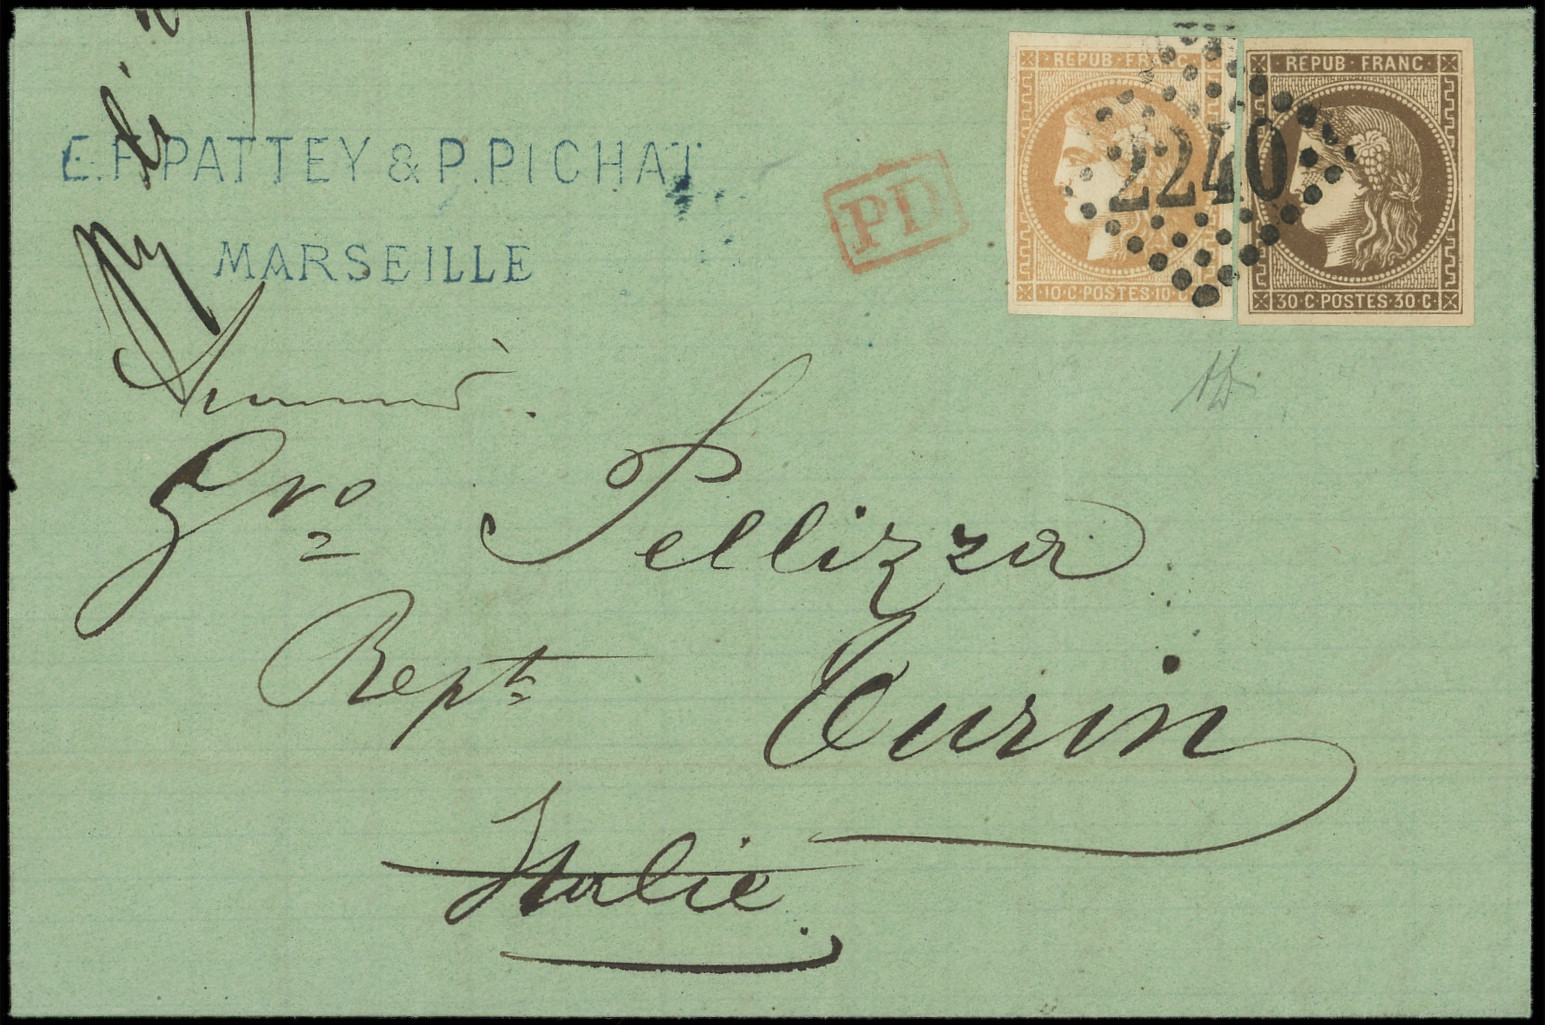 E. F. PATTEY & P. PICHAT
MARSEILLE
PD
REPUB · FRANC
10 · C · POSTES · 10 ·
2240
REPUB · FRANC
30 · C · POSTES · 30 · C
Gro Pellizza
Rept
Turin
Italie